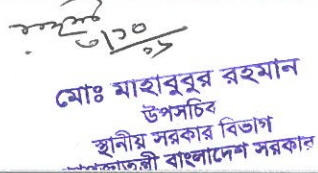 মোঃ মাহাবুবুর রহমান
উপসচিব
স্থানীয় সরকার বিভাগ
বাংলাদেশ সরকার